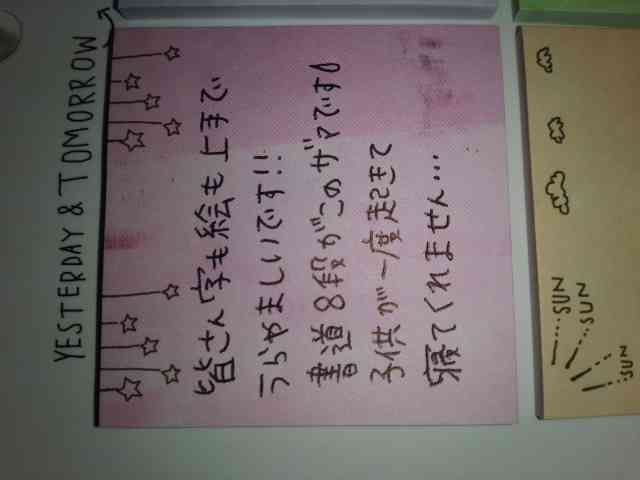 YESTERDAY & TOMORROW
皆さん字も絵も上手で
うらやましいです!!
書道8段がこのザマです
子供が一度起きて
寝てくれません...
SUN
SUN
SUN